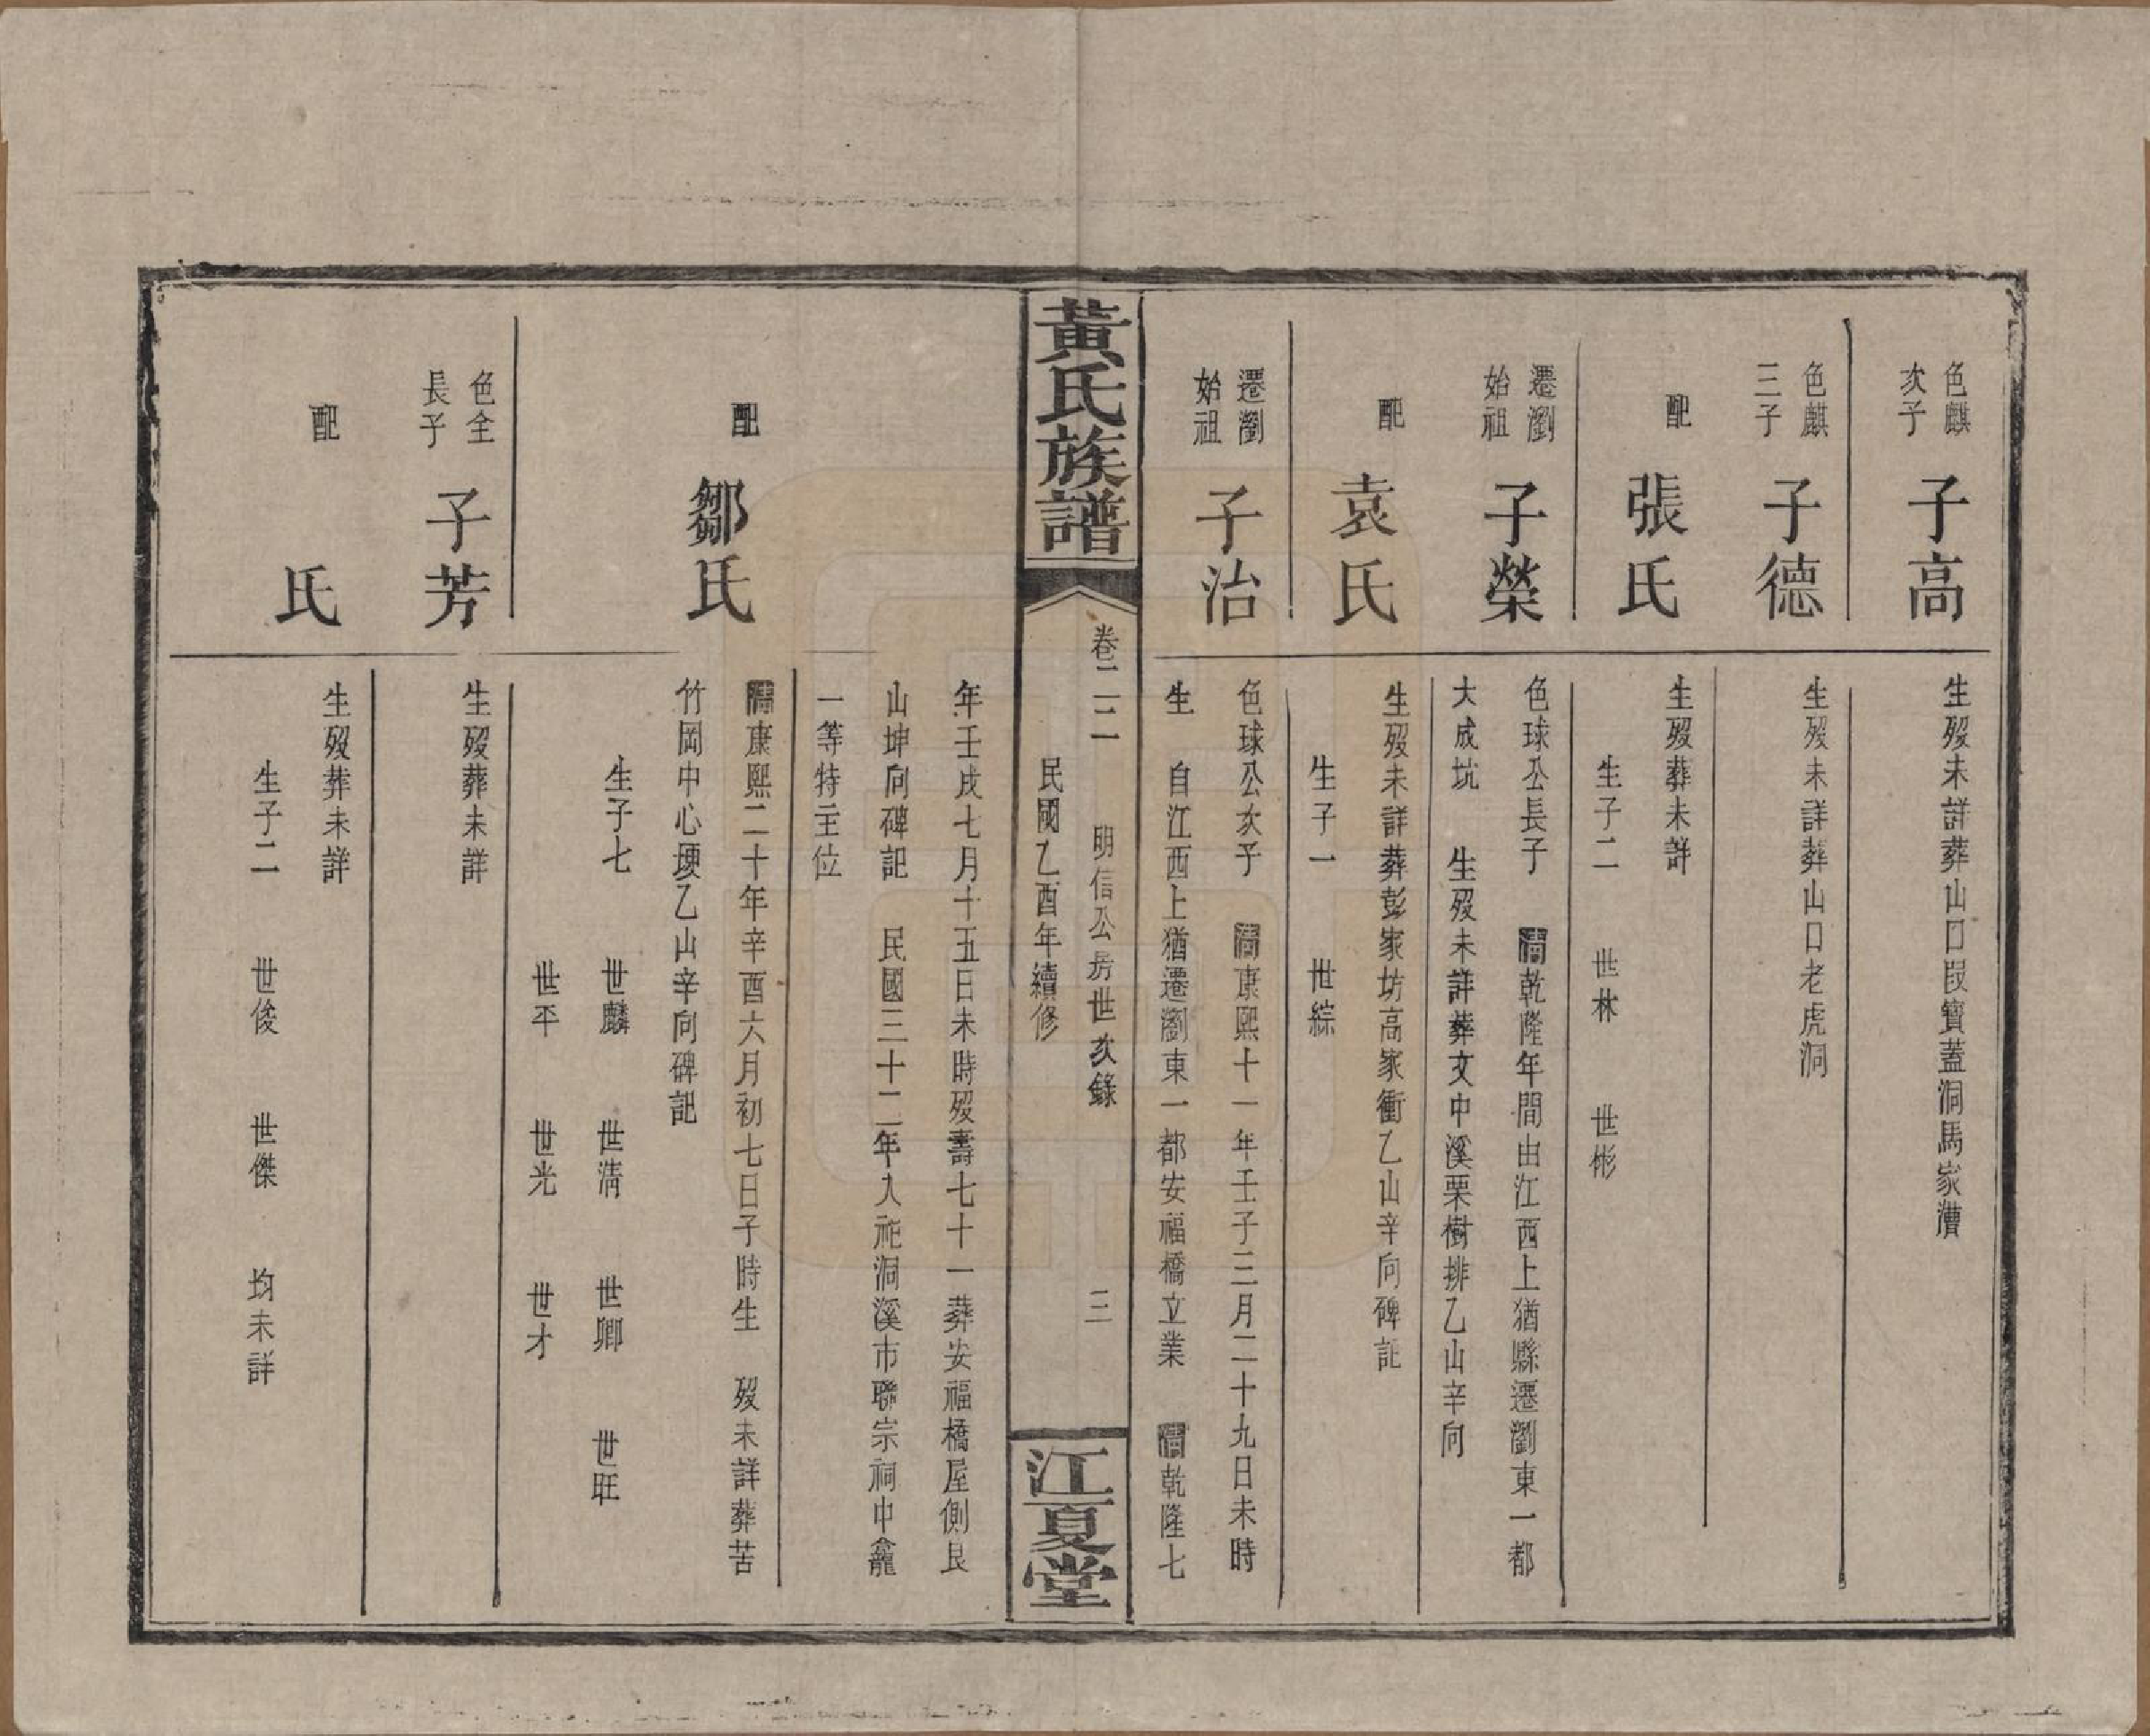 色麒
次子
子高
生歿未詳葬山口叚寶蓋洞馬家漕
色麒
三子
子德
生歿未詳葬山口老虎洞
配
張氏
生歿葬未詳
生子二 世林 世彬
遷瀏
始祖
子榮
色球公長子 清乾隆年間由江西上猶縣遷瀏東一都
大成坑 生歿未詳葬文中溪栗樹排乙山辛向
配
袁氏
生歿未詳葬彭家坊高家衝乙山辛向碑記
生子一 世綜
遷瀏
始祖
子治
色球公次子 清康熙十一年壬子三月二十九日未時
生 自江西上猶遷瀏東一都安福橋立業 清乾隆七
黃氏族譜
卷二二 明信公房世次錄 三
民國乙酉年續修
江夏堂
年壬戌七月十五日未時歿壽七十一葬安福橋屋側艮
山坤向碑記 民國三十二年入祀洞溪市聯宗祠中龕
一等特主位
配
鄒氏
清康熙二十年辛酉六月初七日子時生 歿未詳葬苦
竹岡中心堙乙山辛向碑記
生子七 世麟 世清 世卿 世旺
世平 世光 世才
色全
長子
子芳
生歿葬未詳
配
氏
生歿葬未詳
生子二 世俊 世傑 均未詳